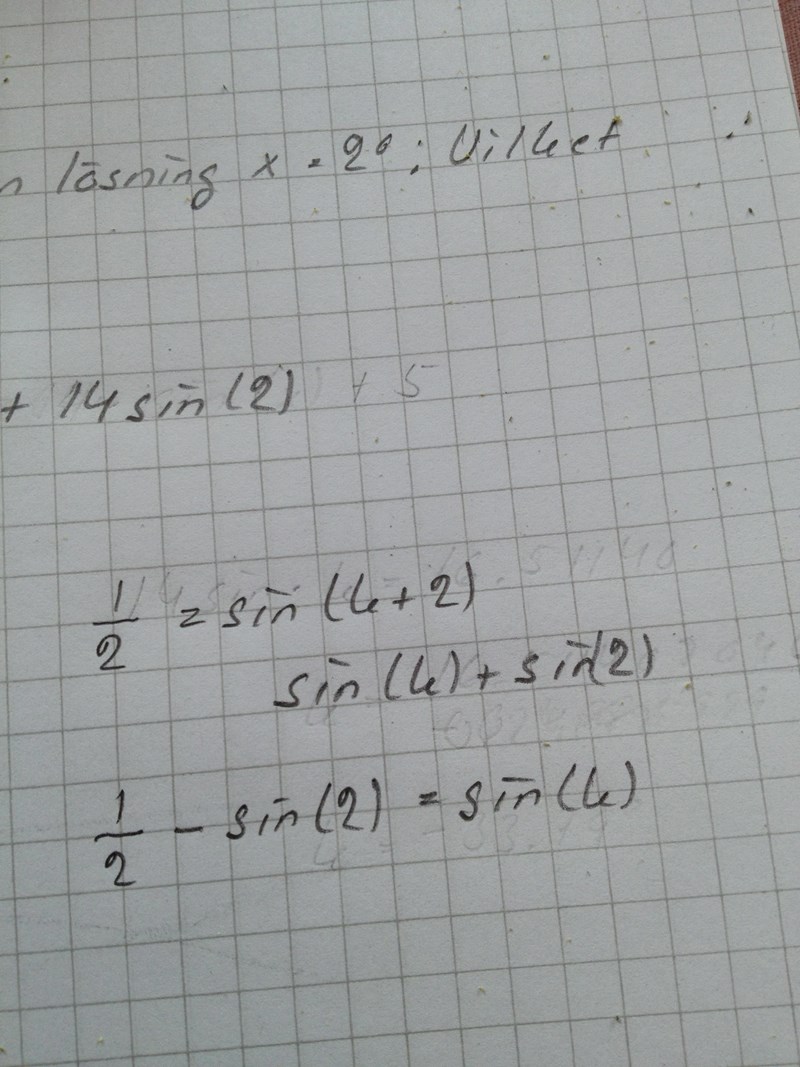 n lösning x = 2°; Vilket
+ 14 sin(2) + 5
1/2 = sin(k+2)
sin(k) + sin(2)
1/2 - sin(2) = sin(k)